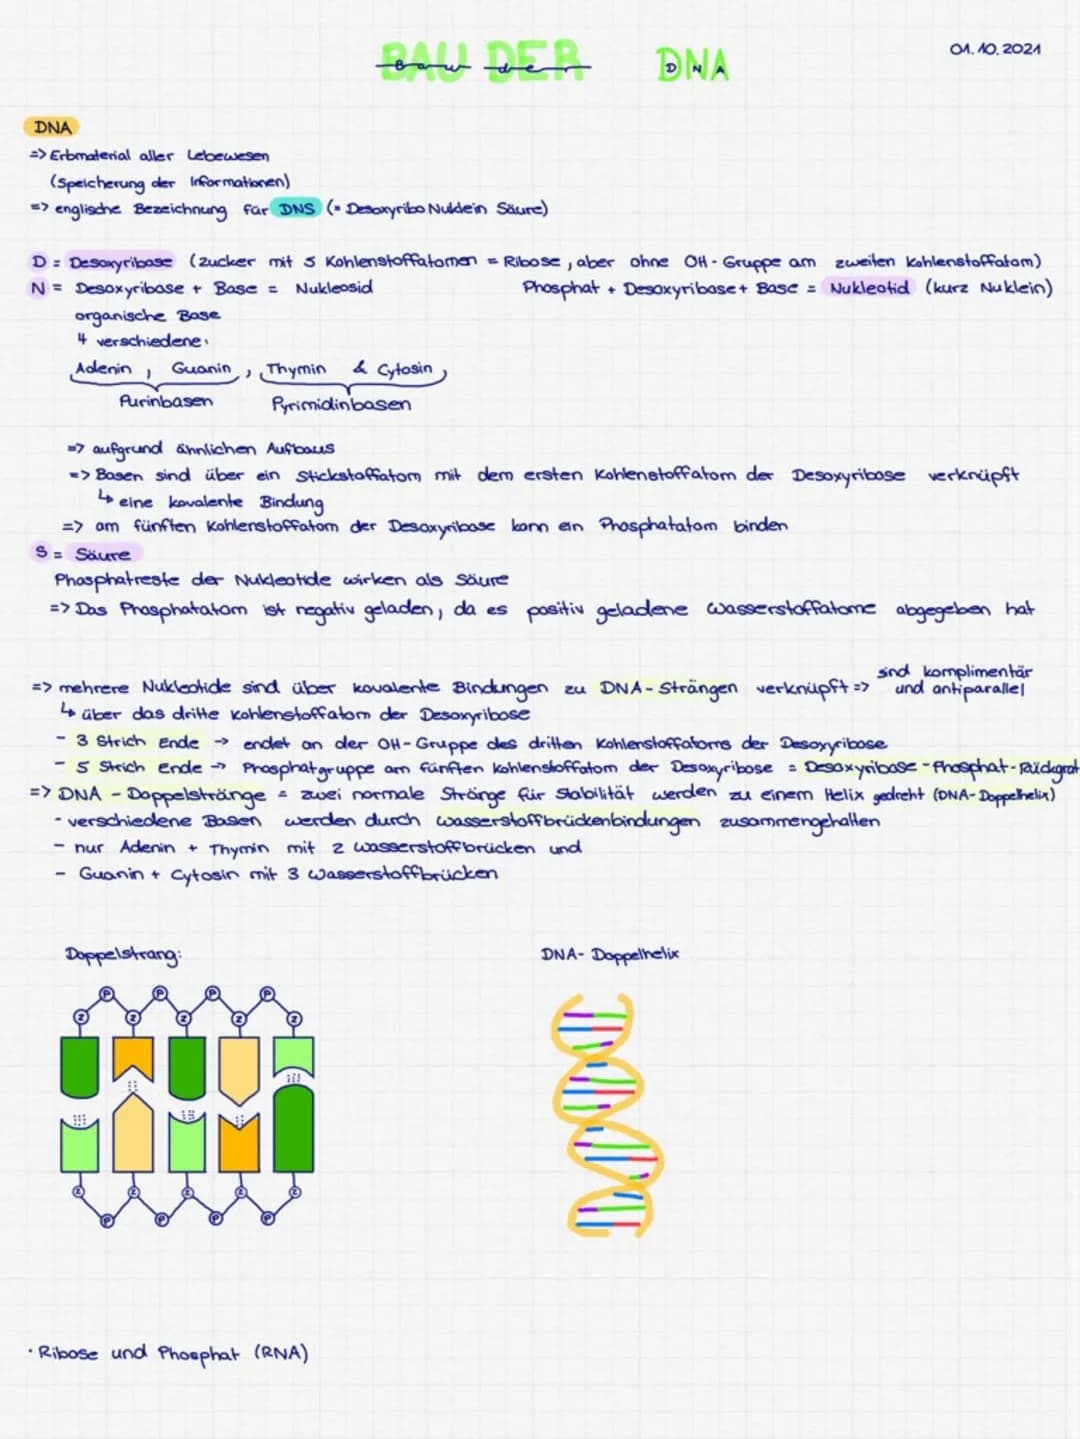 BAU DER DNA
Bau der DNA
01.10.2021
DNA
=> Erbmaterial aller Lebewesen
(Speicherung der Informationen)
=> englische Bezeichnung für DNS (= Desoxyribo Nuklein Säure)
D = Desoxyribose (zucker mit 5 Kohlenstoffatomen = Ribose, aber ohne OH-Gruppe am zweiten Kohlenstoffatom)
N = Desoxyribose + Base = Nukleosid Phosphat + Desoxyribose + Base = Nukleotid (kurz Nuklein)
organische Base
4 verschiedene:
Adenin, Guanin, Thymin & Cytosin,
Purinbasen Pyrimidinbasen
=> aufgrund ähnlichen Aufbaus
=> Basen sind über ein Stickstoffatom mit dem ersten Kohlenstoffatom der Desoxyribose verknüpft
↳ eine kovalente Bindung
=> am fünften Kohlenstoffatom der Desoxyribose kann ein Phosphatatom binden
S = Säure
Phosphatreste der Nukleotide wirken als Säure
=> Das Phosphatatom ist negativ geladen, da es positiv geladene Wasserstoffatome abgegeben hat
=> mehrere Nukleotide sind über kovalente Bindungen zu DNA-Strängen verknüpft => sind komplimentär und antiparallel
↳ über das dritte Kohlenstoffatom der Desoxyribose
- 3 Strich Ende → endet an der OH-Gruppe des dritten Kohlenstoffatoms der Desoxyribose
- 5 Strich Ende → Phosphatgruppe am fünften Kohlenstoffatom der Desoxyribose = Desoxyribose-Phosphat-Rückgrat
=> DNA-Doppelstränge = zwei normale Stränge für Stabilität werden zu einem Helix gedreht (DNA-Doppelhelix)
- verschiedene Basen werden durch Wasserstoffbrückenbindungen zusammengehalten
- nur Adenin + Thymin mit 2 Wasserstoffbrücken und
- Guanin + Cytosin mit 3 Wasserstoffbrücken
Doppelstrang: DNA-Doppelhelix
P P P P
Z Z Z Z Z
Z Z Z Z Z
P P P P
· Ribose und Phosphat (RNA)